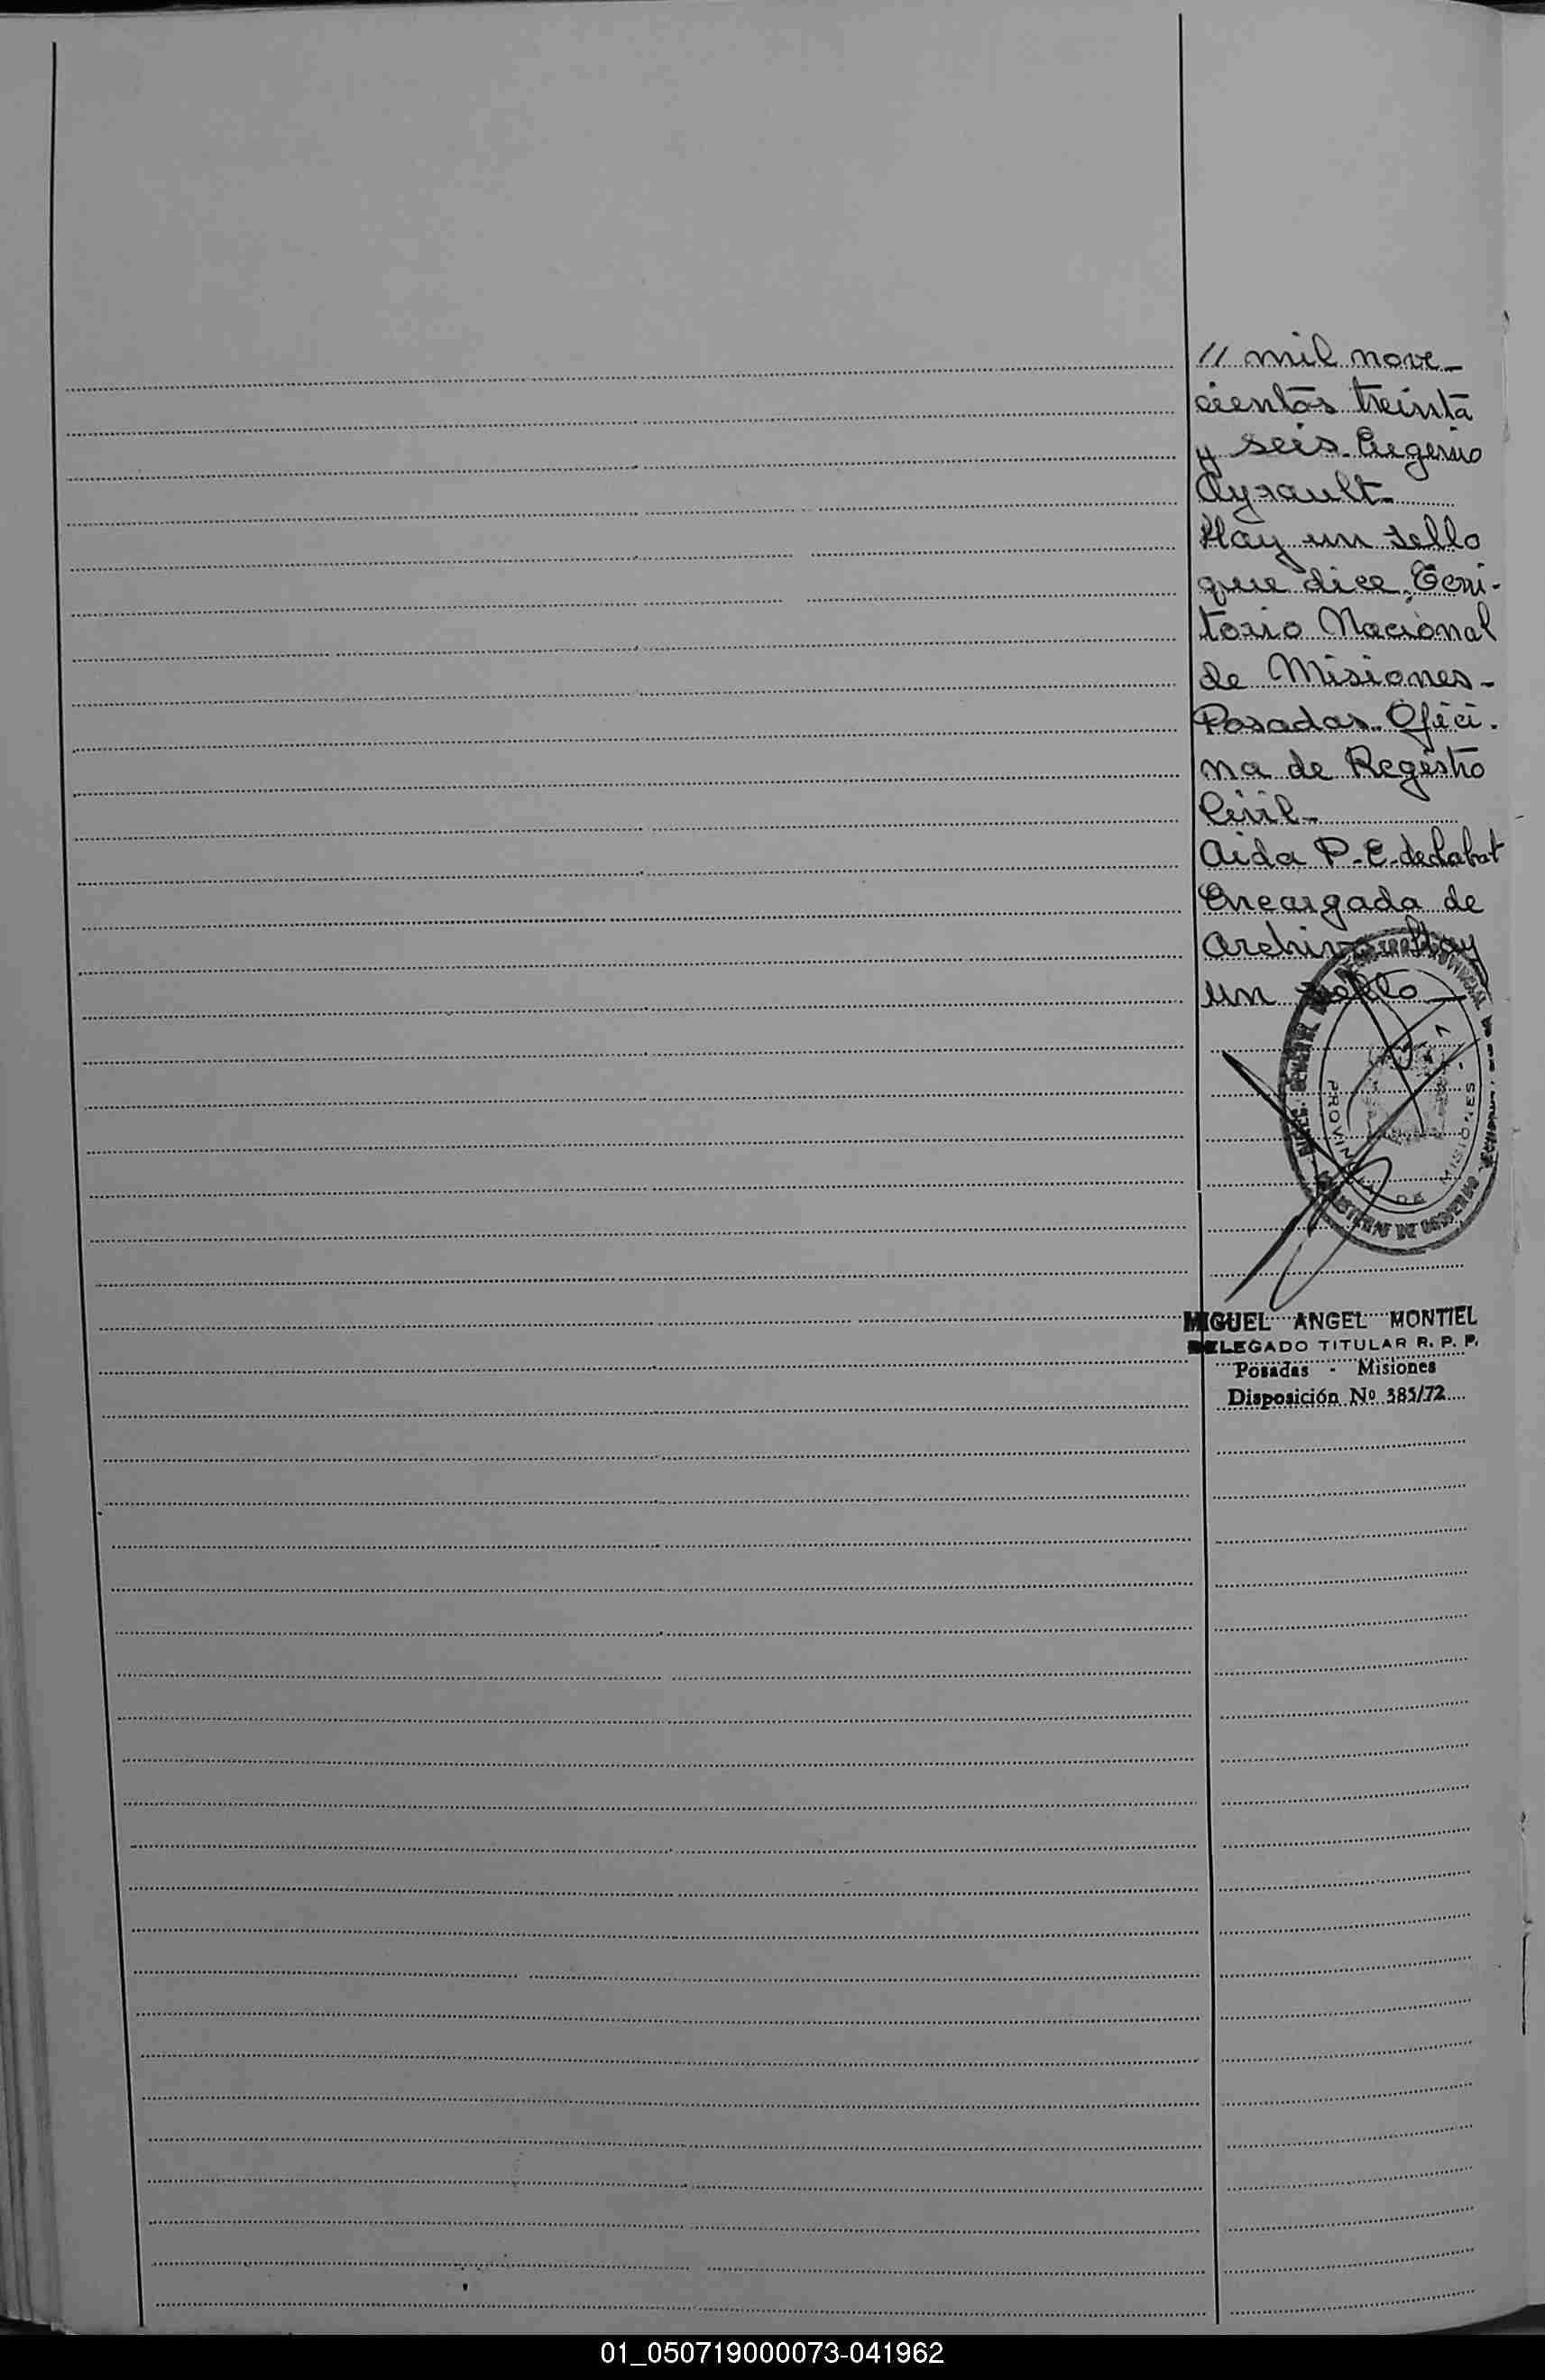 // mil nove-
cientos treinta
y seis. Eugenio
Ayrault-
Hay un sello
que dice. Terri-
torio Nacional
de Misiones-
Posadas. Ofici-
na de Registro
Civil-
Aida P. E. de Labat
Encargada de
Archivo Hay
un sello
PROVINCIA DE MISIONES
MIGUEL ANGEL MONTIEL
DELEGADO TITULAR R. P. P.
Posadas - Misiones
Disposición Nº 385/72
01_050719000073-041962